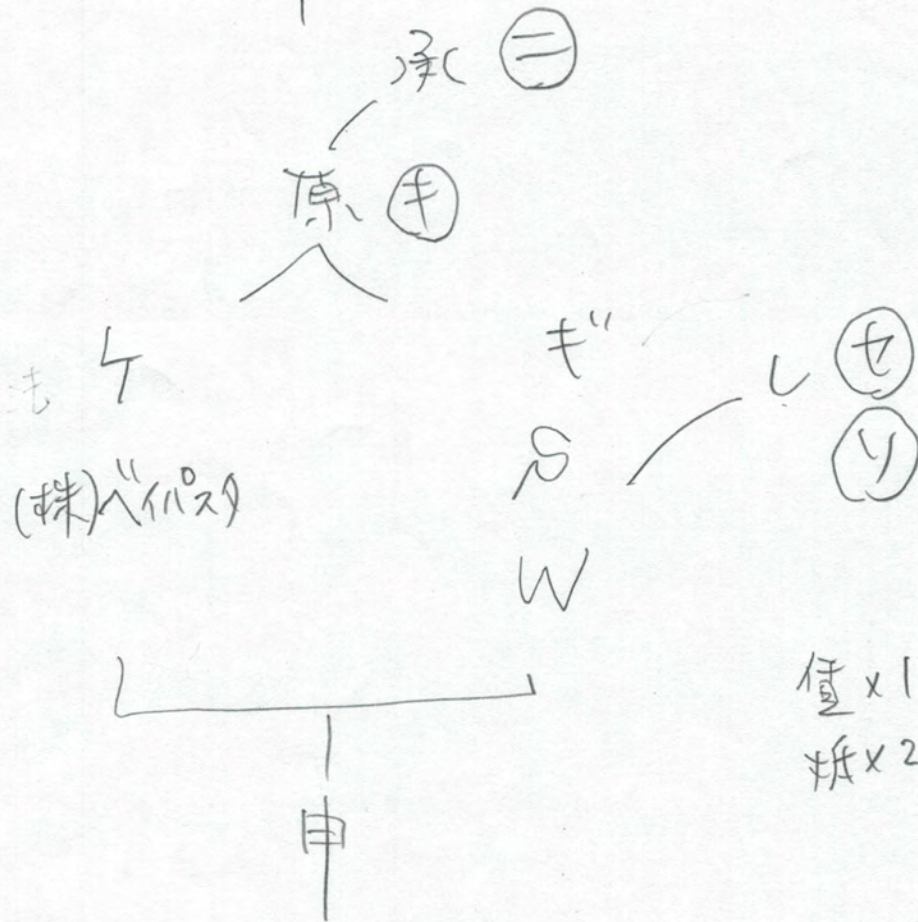 承 ㊁
原 キ
ケ ギ
し セ
S ソ
(株)ベイパスタ
W
値×1
紙×2
申